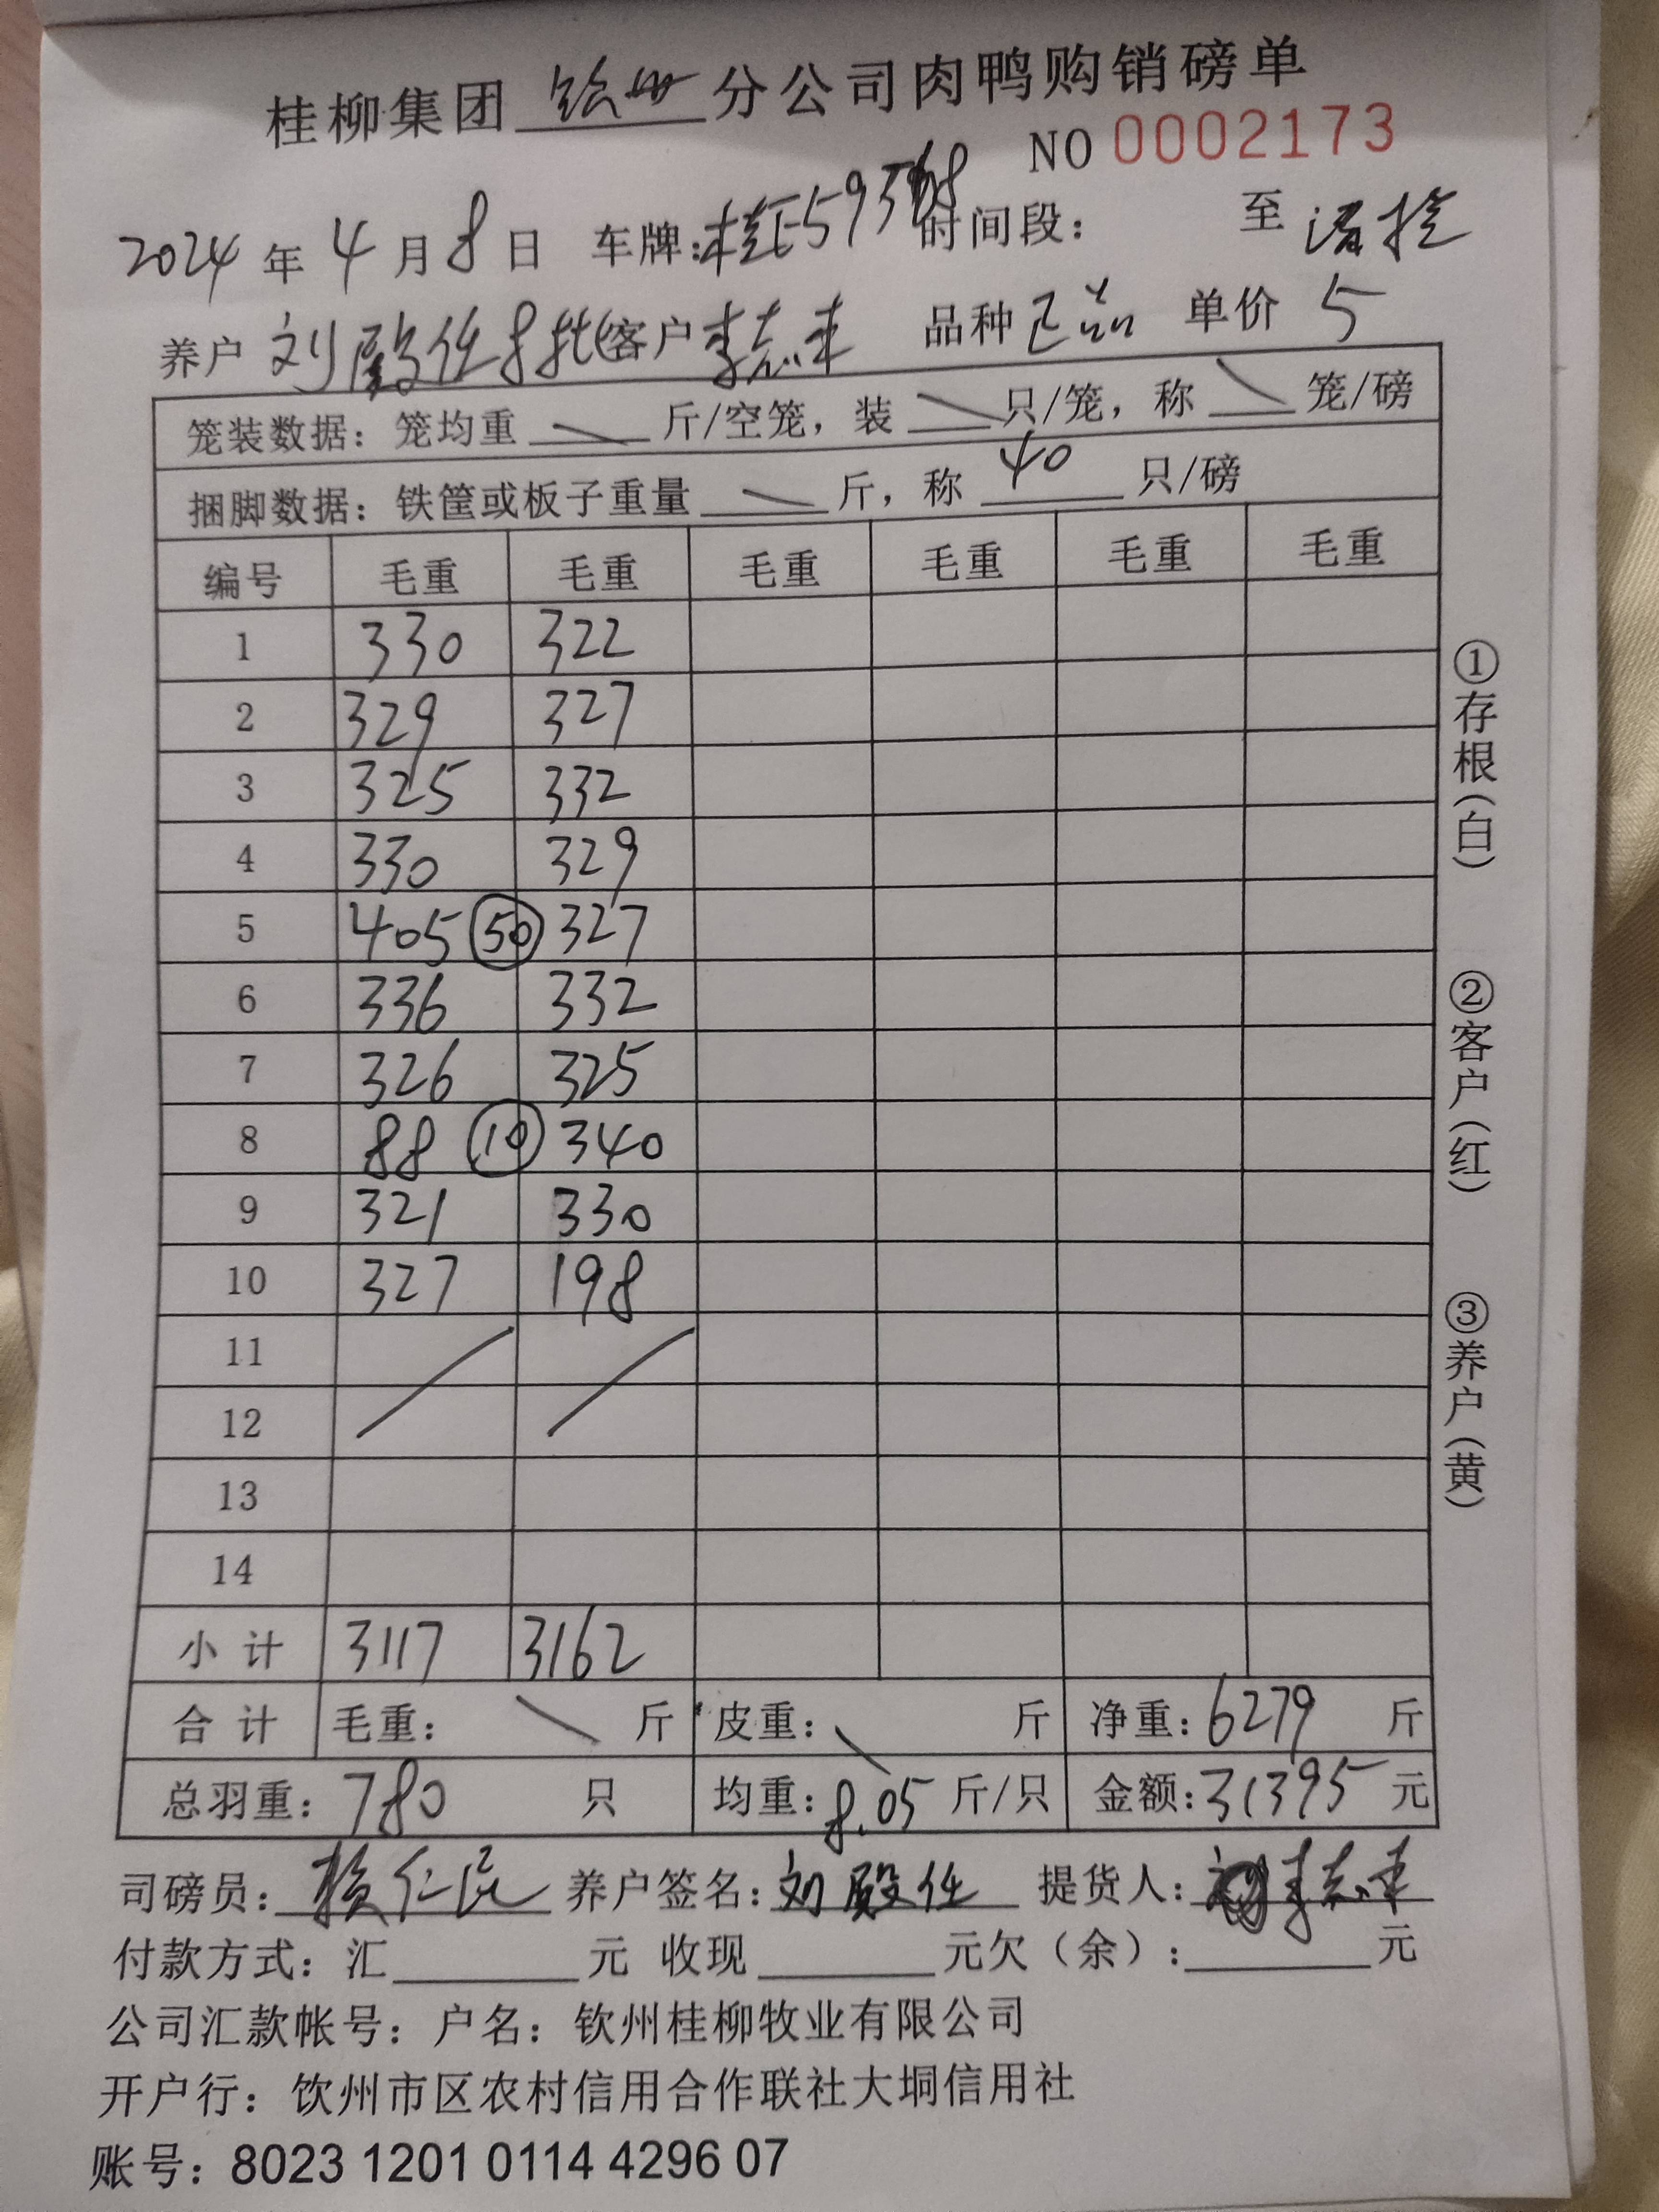 桂柳集团 钦州 分公司肉鸭购销磅单
NO 0002173
2024 年 4 月 8 日 车牌: 时间段: 至
养户 刘殿任8批 客户 李志丰 品种 正品 单价 5
笼装数据: 笼均重 斤/空笼, 装 只/笼, 称 笼/磅
捆脚数据: 铁筐或板子重量 斤, 称 40 只/磅
编号 毛重 毛重 毛重 毛重 毛重 毛重
1 330 322
2 329 327
3 325 332
4 330 329
5 405 50 327
6 336 332
7 326 325
8 88 10 340
9 321 330
10 327 198
11
12
13
14
小计 3117 3162
合计 毛重: 斤 皮重: 斤 净重: 6279 斤
总羽重: 780 只 均重: 8.05 斤/只 金额: 31395 元
司磅员: 养户签名: 刘殿任 提货人: 李志丰
付款方式: 汇 元 收现 元欠(余): 元
公司汇款帐号: 户名: 钦州桂柳牧业有限公司
开户行: 钦州市区农村信用合作联社大垌信用社
账号: 8023 1201 0114 4296 07
①存根(白)
②客户(红)
③养户(黄)